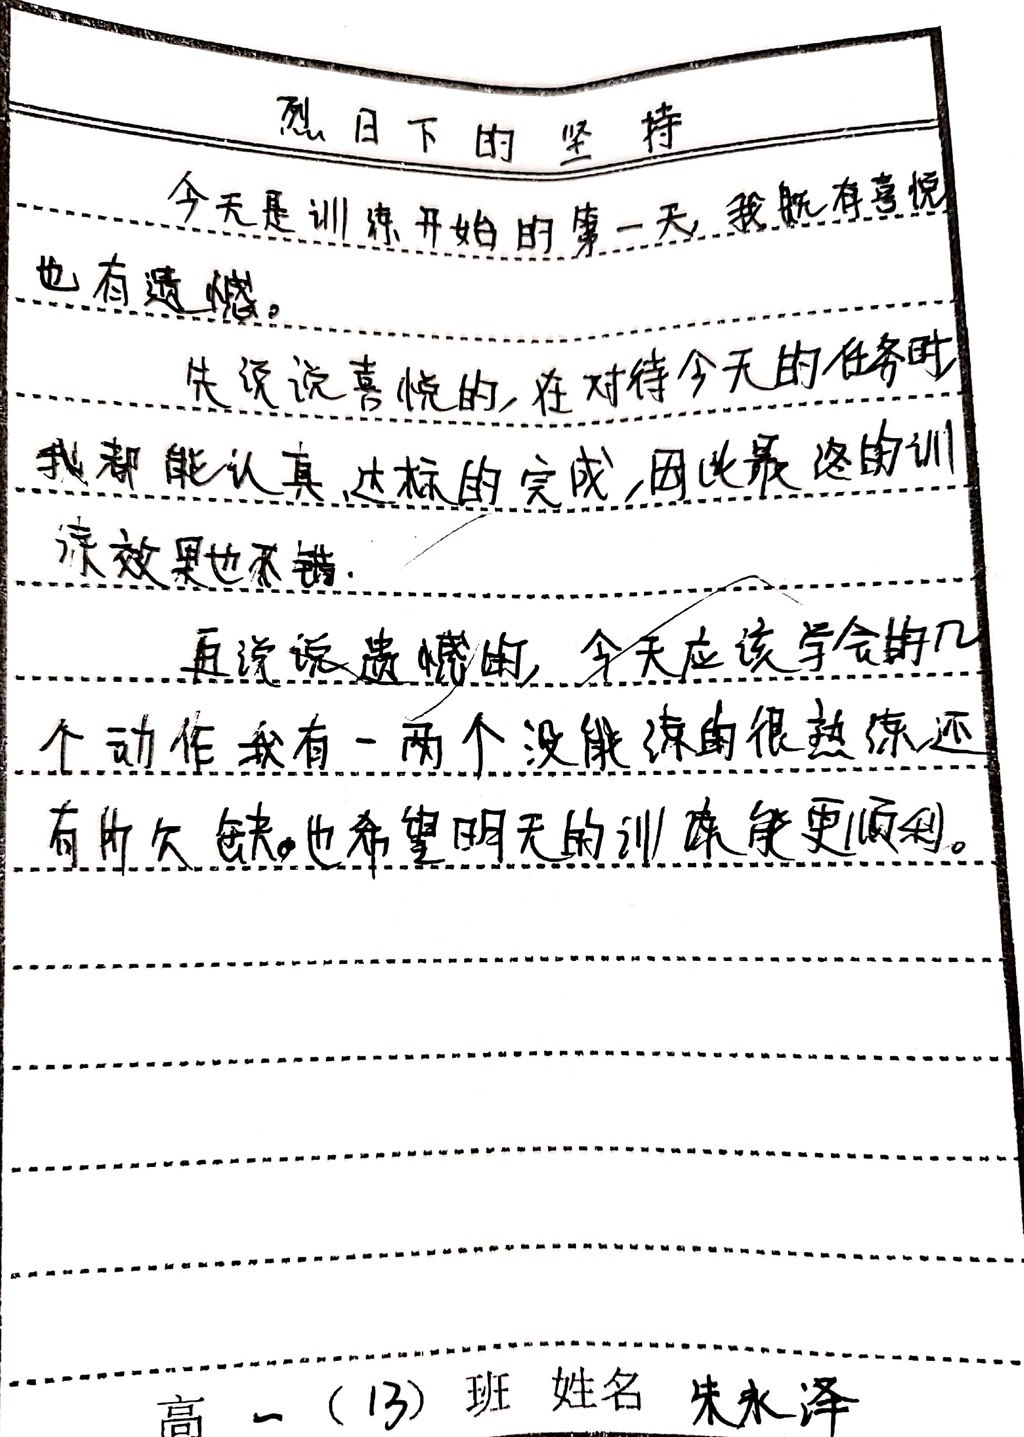 烈日下的坚持
今天是训练开始的第一天,我既有喜悦
也有遗憾。
先说说喜悦的,在对待今天的任务时,
我都能认真、达标的完成,因此最终的训
练效果也不错.
再说说遗憾的,今天应该学会的几
个动作我有一两个没能练的很熟练,还
有所欠缺。也希望明天的训练能更顺利。
高一(13)班 姓名 朱永泽